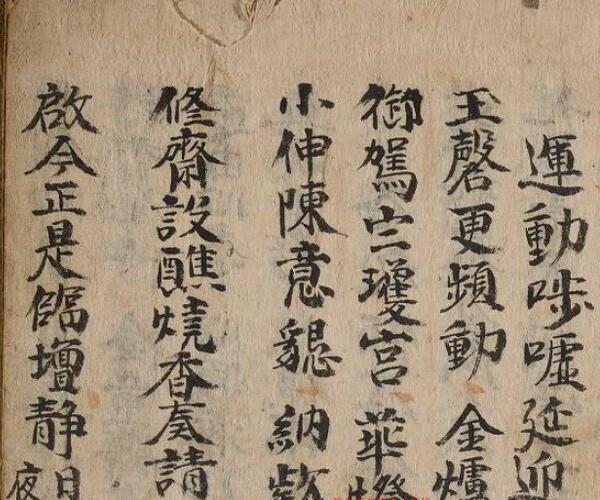 運動步噓延迎
玉磬更頻動金爐
御駕亡瓊宮華燈
小伸陳意懇納歆
修齋設醮燒香奏請
啟今正是臨壇靜日夜